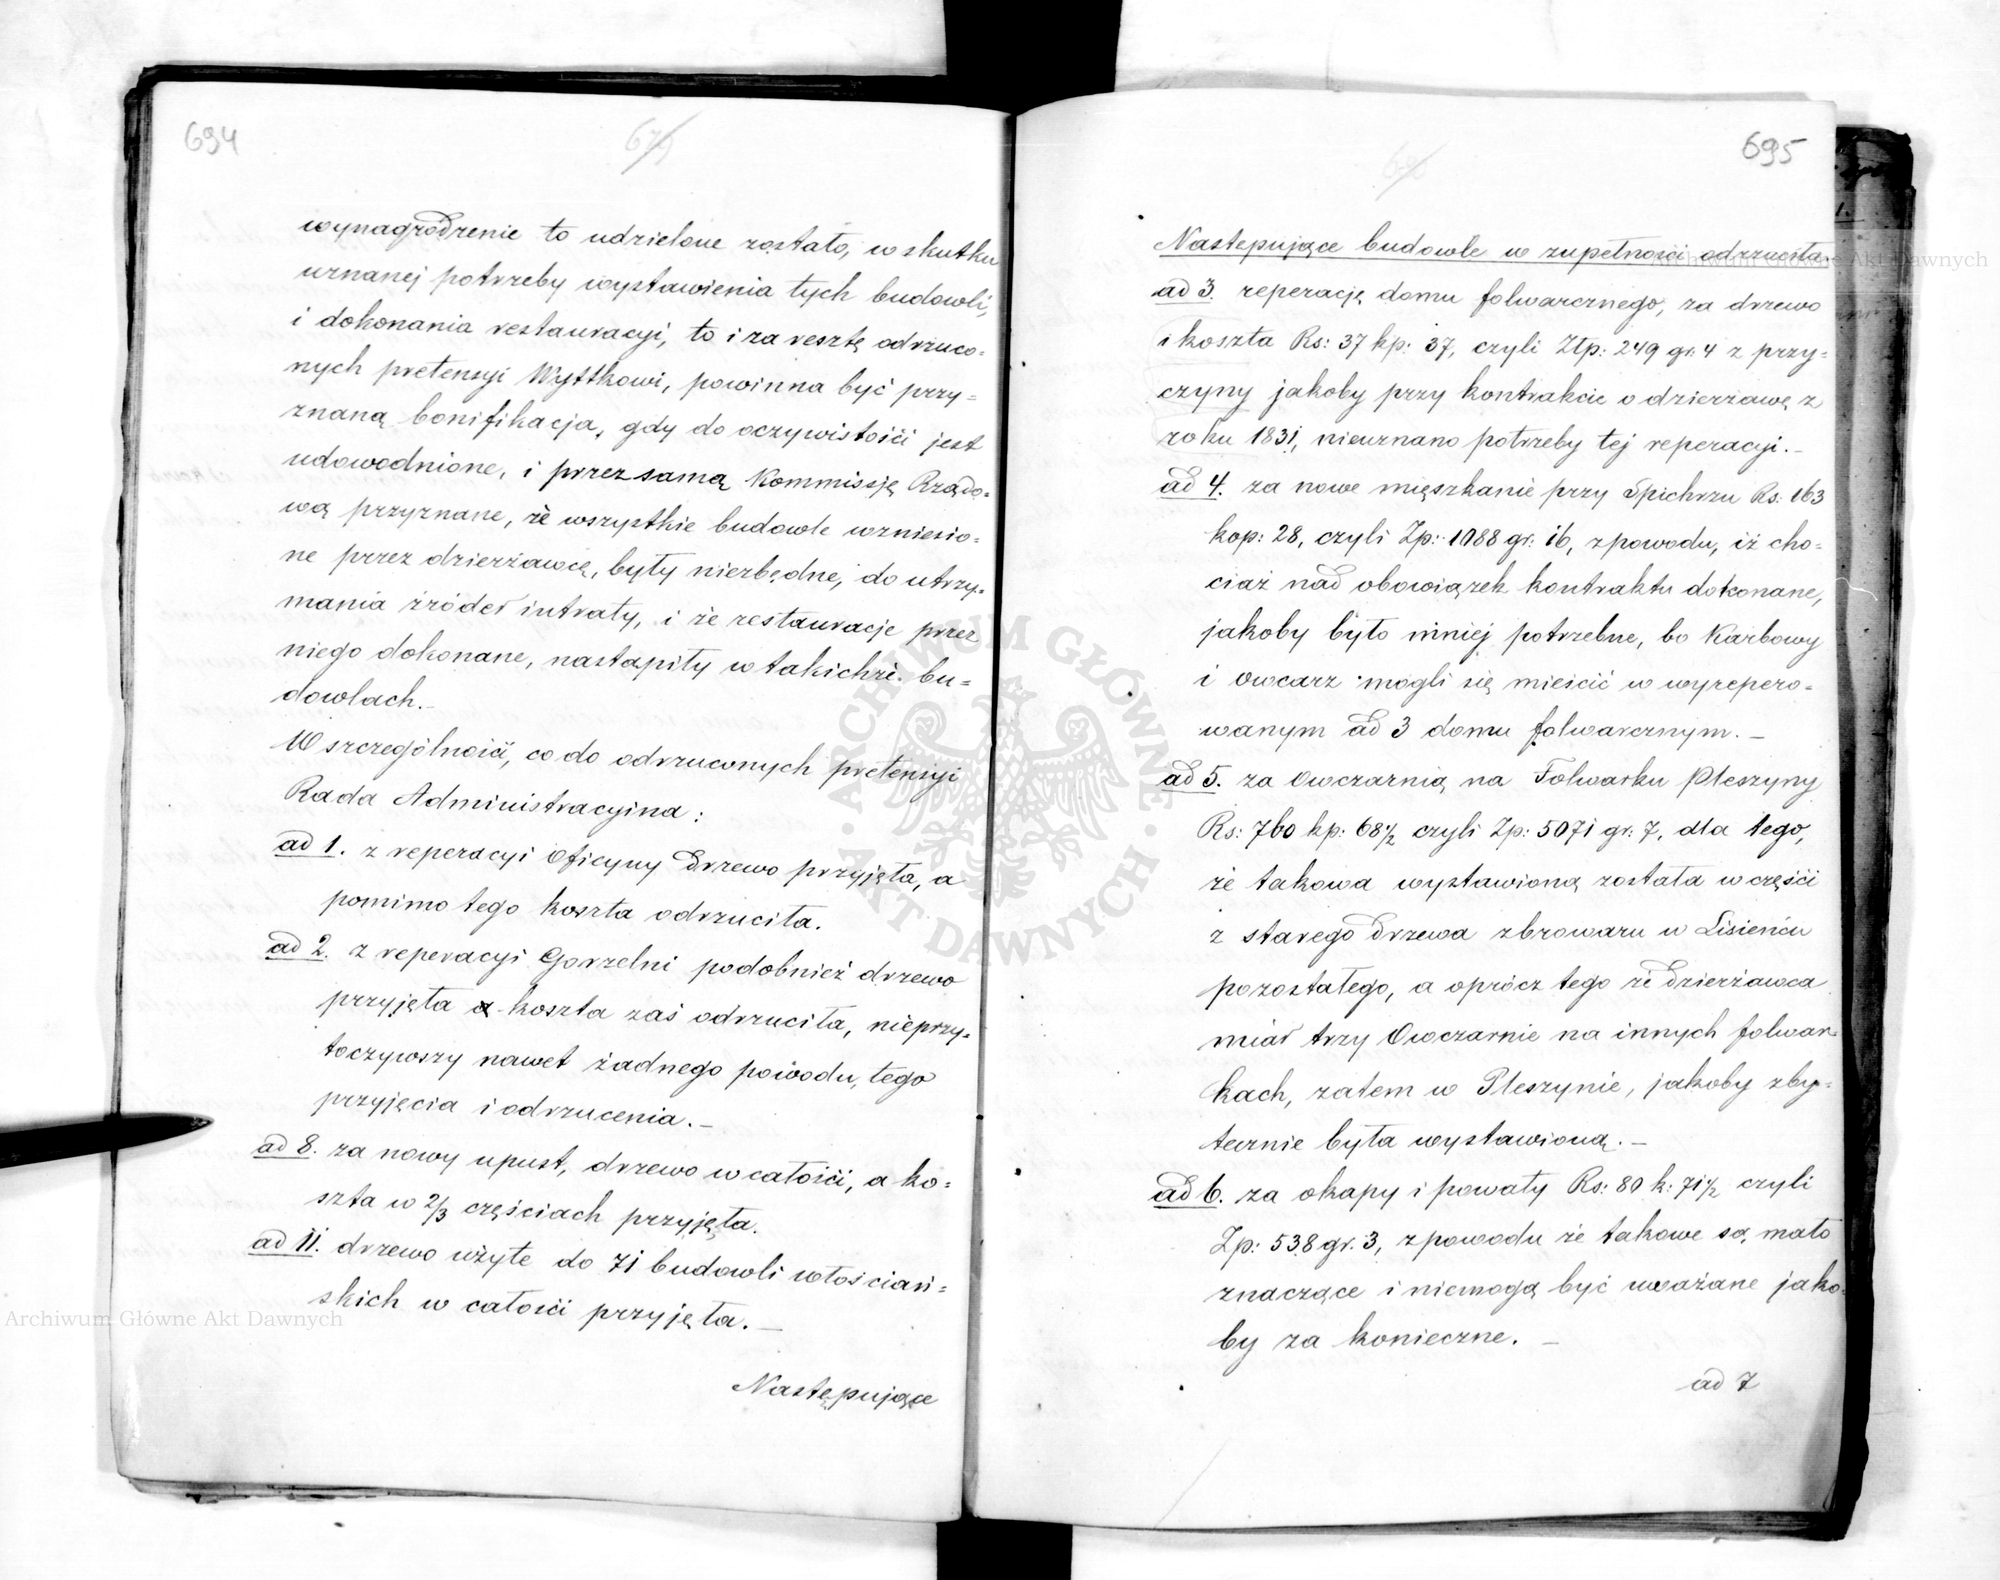 694
679
wynagrodzenie to udzielone zostało, w skutku
uznanej potrzeby wystawienia tych budowli,
i dokonania restauracyi, to i za resztę odrzuco=
nych pretensyi Wyttkowi, powinna być przy=
znaną bonifikacja, gdy do oczywistości jest
udowodnione, i przez samą Kommissję Rządo=
wą przyznane, że wszystkie budowle wzniesio=
ne przez dzierżawcę, były niezbędne, do utrzy=
mania źródeł intraty, i że restauracje przez
niego dokonane, nastąpiły w takichże bu=
dowlach.—
W szczególności, co do odrzuconych pretensyi
Rada Administracyina:
ad 1. z reperacyi oficyny drzewo przyjęła, a
pomimo tego koszta odrzuciła.
ad 2. z reperacyi Gorzelni podobnież drzewo
przyjęła koszta zaś odrzuciła, nieprzy=
toczywszy nawet żadnego powodu, tego
przyjęcia i odrzucenia.—
ad 8. za nowy upust, drzewo w całości, a ko=
szta w 2/3 częściach przyjęła.
ad 11. drzewo użyte do 71 budowli włościań=
skich w całości przyjęła.—
Następujące
695
Następujące budowle w zupełności odrzuciła.
ad 3. reperację domu folwarcznego, za drzewo
i koszta Rs: 37 kp: 37, czyli Złp: 249 gr. 4 z przy=
czyny jakoby przy kontrakcie o dzierżawę z
roku 1831, nieuznano potrzeby tej reperacyi.—
ad 4. za nowe mięszkanie przy Spichrzu Rs: 163
kop: 28, czyli Zp: 1088 gr: 16, z powodu, iż cho=
ciaż nad obowiązek kontraktu dokonane,
jakoby było mniej potrzebne, bo Karbowy
i owcarz mogli się mieścić w wyrepero=
wanym ad 3 domu folwarcznym.—
ad 5. za Owczarnią na Folwarku Pleszyny
Rs: 760 kp: 68 1/2 czyli Zp: 5071 gr: 7, dla tego,
że takowa wystawioną została w częśći
z starego drzewa z browaru w Lisieńcu
pozostałego, a oprócz tego że dzierżawca
miał trzy Owczarnie na innych folwar=
kach, zatem w Pleszynie, jakoby zby=
tecznie była wystawioną.—
ad 6. za okapy i powały Rs: 80 k: 71 1/2 czyli
Zp: 538 gr. 3, z powodu że takowe są mało
znaczące i niemogą być uważane jako=
by za konieczne.—
ad 7
Archiwum Główne Akt Dawnych
Archiwum Główne Akt Dawnych
ARCHIWUM GŁÓWNE · AKT DAWNYCH ·